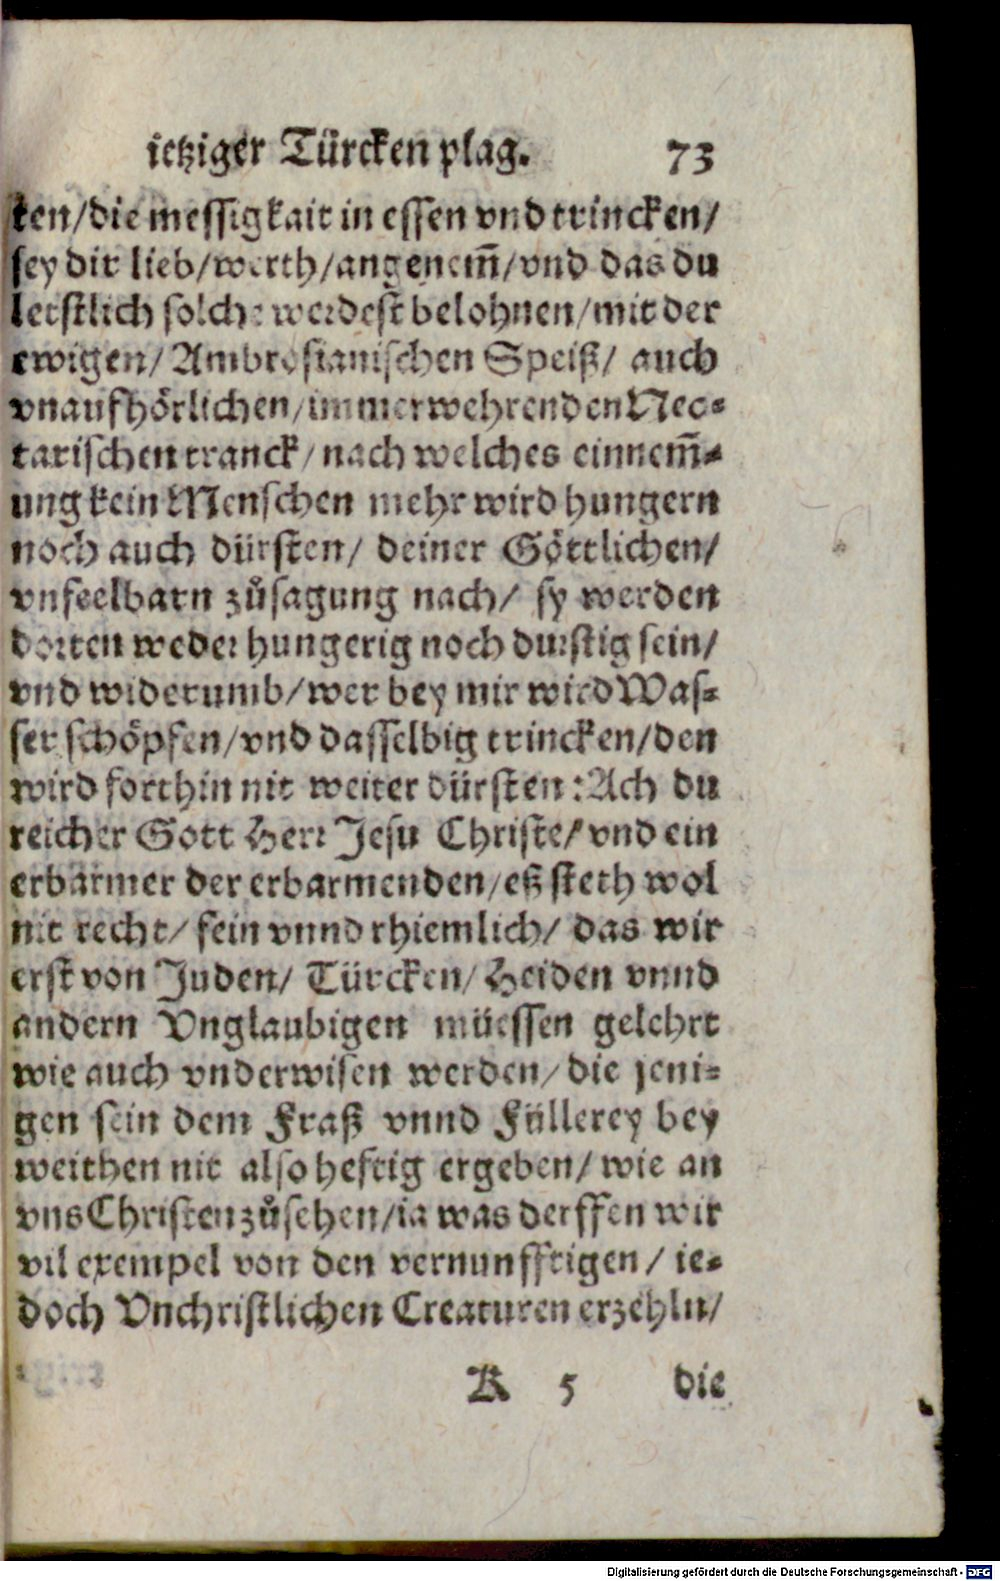 ietziger Türcken plag. 73
ten/die messigkait in essen vnd trincken/
sey dir lieb/werth/angenem̃/vnd das du
letstlich solche werdest belohnen/mit der
ewigen/ Ambrosianischen Speiß/ auch
vnaufhörlichen/immerwehrenden Nec-
tarischen tranck/nach welches einnem̃-
ung kein Menschen mehr wird hungern
noch auch dürsten/ deiner Göttlichen/
vnfeelbarn zůsagung nach/ sy werden
dorten weder hungerig noch durstig sein/
vnd widerumb/wer bey mir wird Was-
ser schöpfen/vnd dasselbig trincken/den
wird forthin nit weiter dürsten: Ach du
reicher Gott Herr Jesu Christe/ vnd ein
erbarmer der erbarmenden/eß steth wol
nit recht/ fein vnnd rhiemlich/ das wir
erst von Juden/ Türcken/ Heiden vnnd
andern Vnglaubigen müessen gelehrt
wie auch vnderwisen werden/ die jeni-
gen sein dem Fraß vnnd Füllerey bey
weithen nit also heftig ergeben/ wie an
vns Christen zůsehen/ia was derffen wir
vil exempel von den vernunfftigen/ ie-
doch Vnchristlichen Creaturen erzehln/
K 5 die
Digitalisierung gefördert durch die Deutsche Forschungsgemeinschaft - DFG